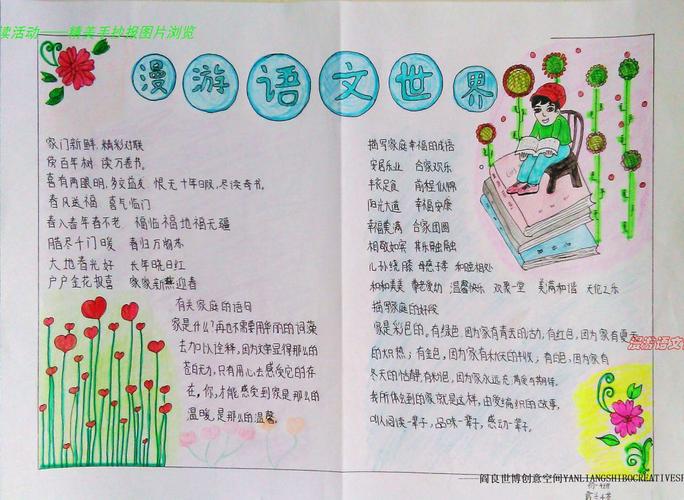 读活动——精美手抄报图片浏览
漫游语文世界
家门新鲜，精彩对联
房百年树 读万卷书。
喜有两眼明，多交益友 恨无十年暇，尽读奇书。
春风送福 喜气临门
春入春年春不老 福临福地福无疆
腊尽千门暖 春归万柳
大地春光好 长年晓日红
户户金花报喜 家家新燕迎春
有关家庭的语句
家是什么？再也不需要用华丽的词藻
去加以诠释，因为文字显得那么的
苍白无力，只有用心去感受它的存
在，你，才能感受到家是那么的
温暖，是那么的温馨。
描写家庭幸福的成语
安居乐业 合家欢乐
丰衣足食 前程似锦
阳光大道 幸福安康
幸福美满 合家团圆
相敬如宾 其乐融融
儿孙绕膝 母慈子孝 和睦相处
和和美美 尊老爱幼 温馨快乐 欢聚一堂 美满和谐 天伦之乐
描写家庭的好段
家是彩色的。有绿色，因为家有春天的活力，有红色，因为家有夏天
的炽热；有金色，因为家有秋天的丰收；有白色，因为家有
冬天的恬静，有粉色，因为家永远充满爱与期待。
我所体会到的家就是这样，由爱编织的故事，
叫人阅读一辈子，品味一辈子，感动一辈子。
漫游语文
——阎良世博创意空间YANLIANGSHIBOCREATIVESP